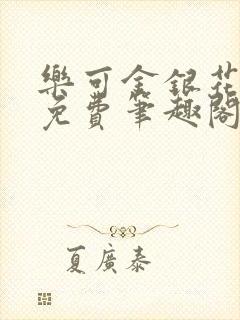 樂可金銀花
免費筆趣閣
夏廣泰